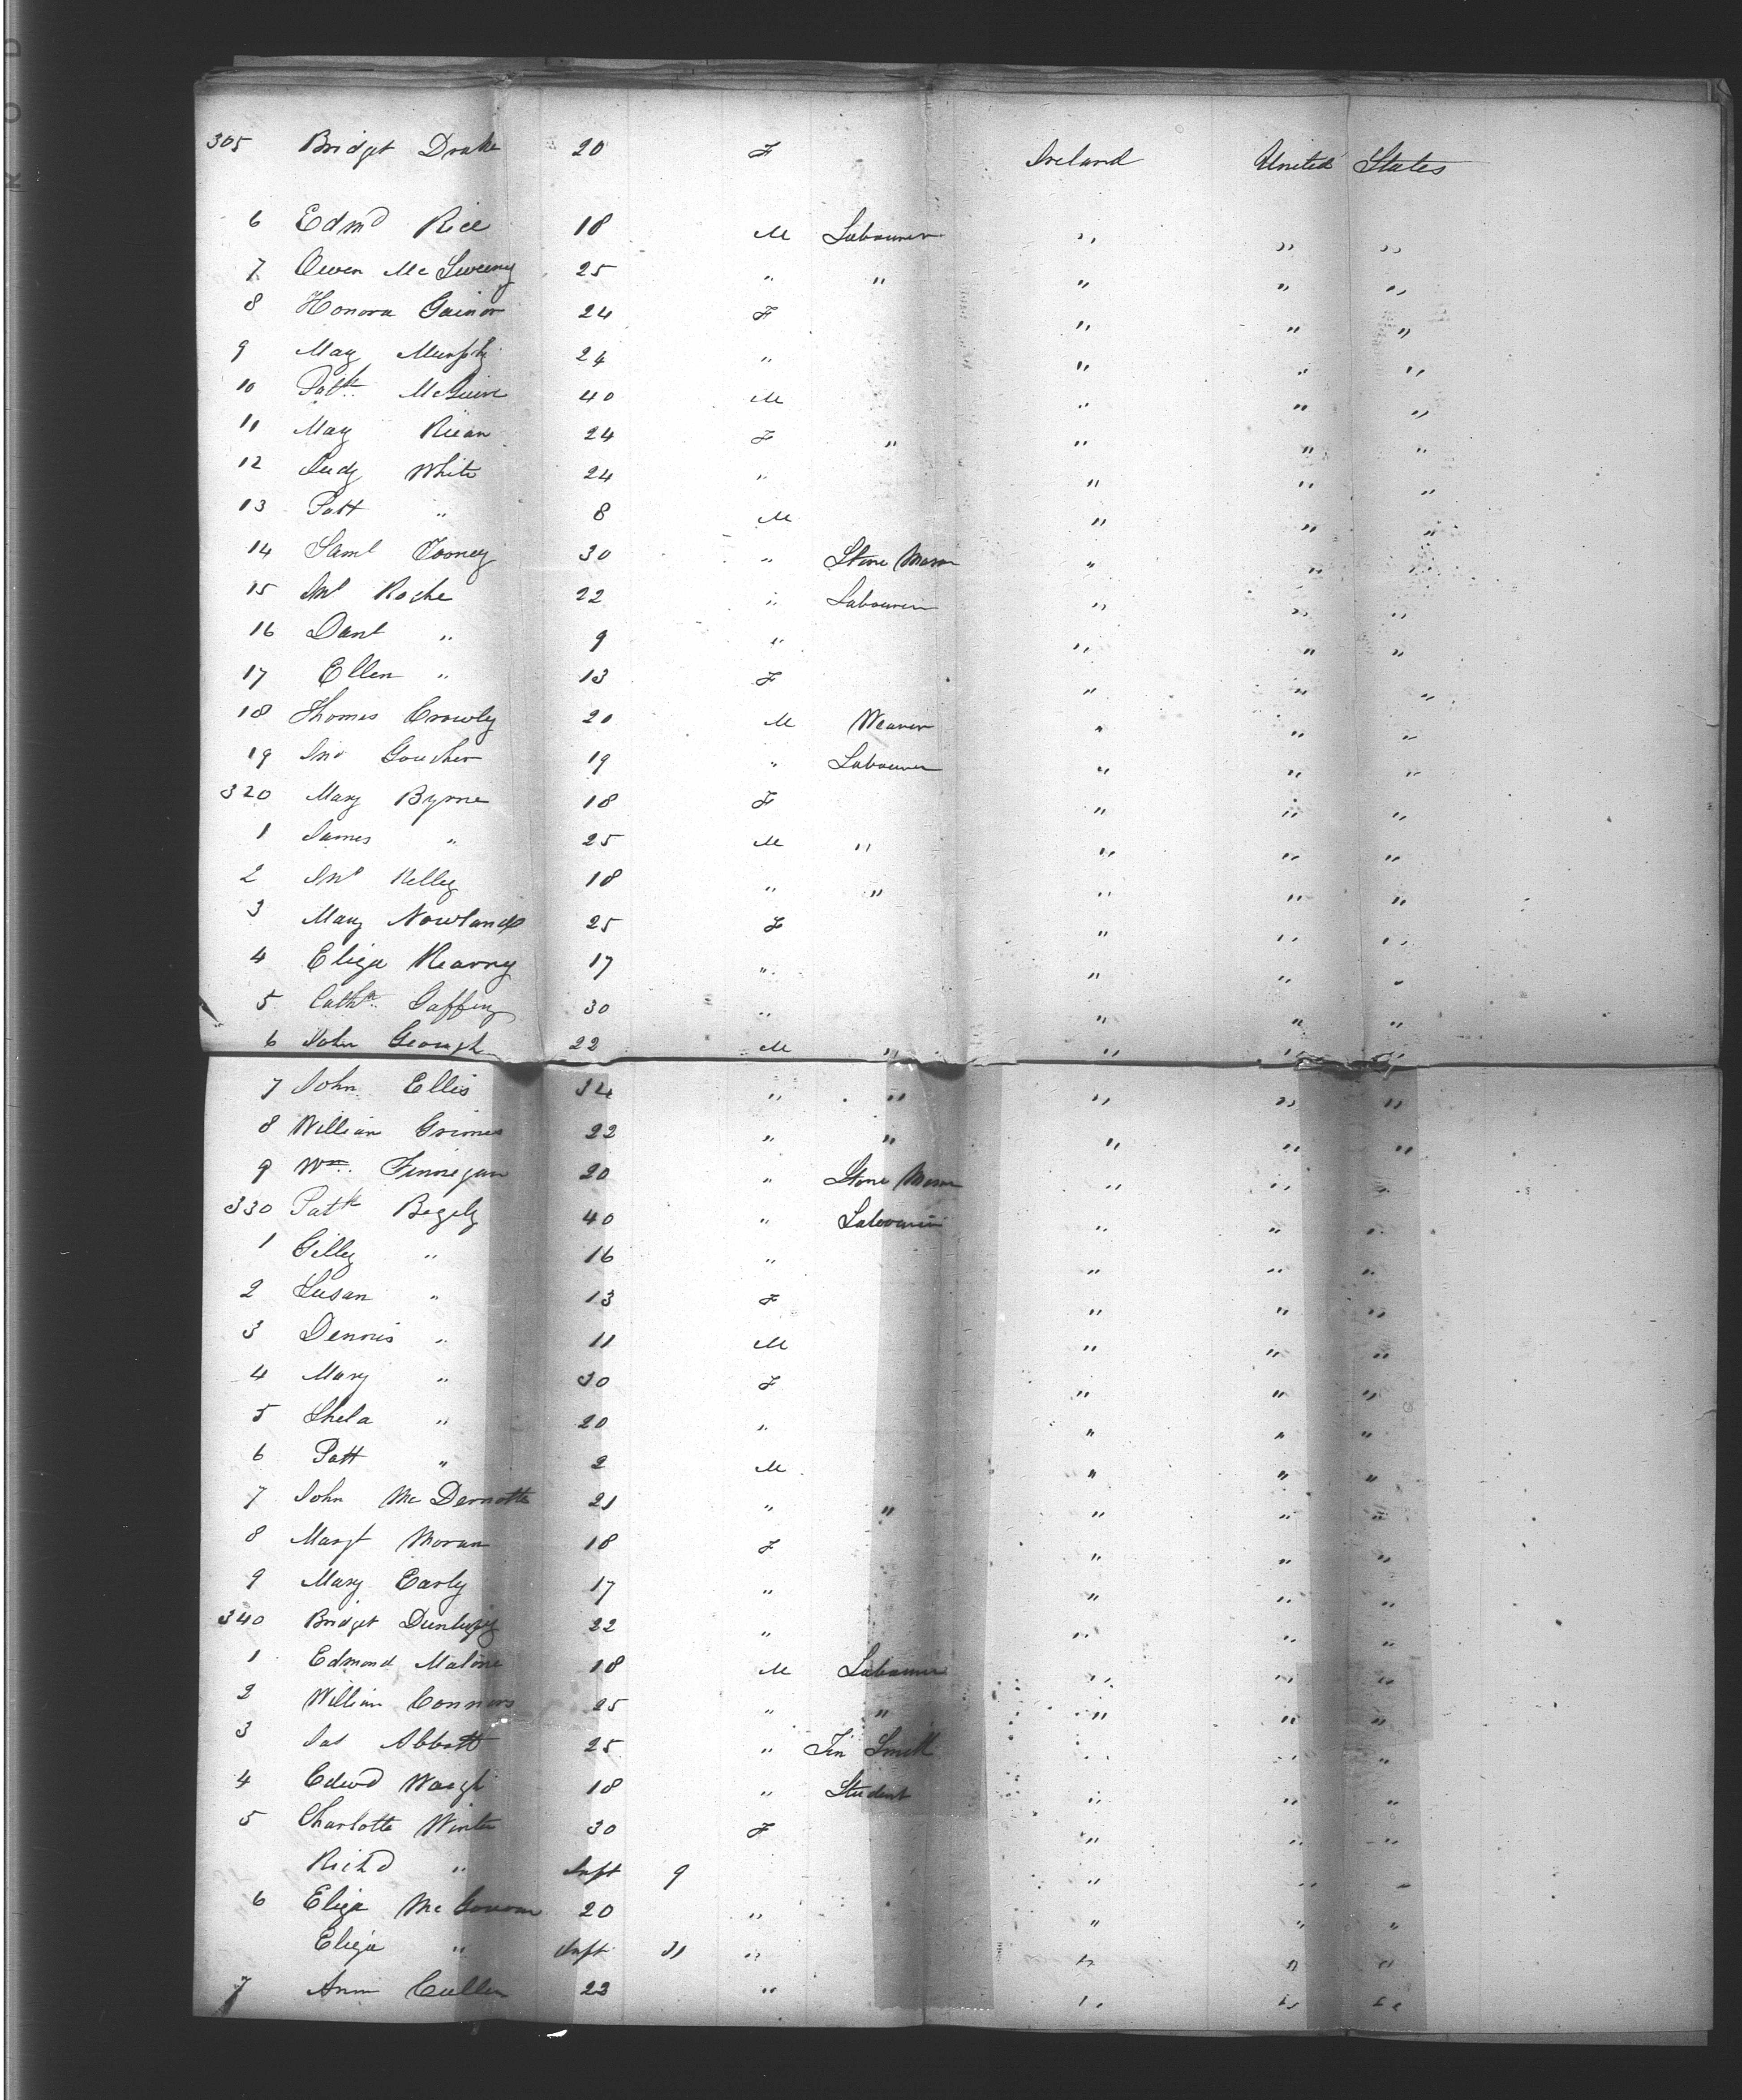 305 Bridget Drake 20 F Ireland United States
6 Edmd Rice 18 M Labourer " " "
7 Owen McSweeny 25 " " " " "
8 Honora Gainor 24 F " " "
9 May Murphy 24 " " " "
10 Patk McGuire 40 M " " "
11 May Riean 24 F " " " "
12 Judy White 24 " " " "
13 Patt " 8 M " " "
14 Saml Toomey 30 " Stone Mason " " "
15 Jno Roche 22 " Labourer " " "
16 Danl " 9 " " " "
17 Ellen " 13 F " " "
18 Thomas Crowly 20 M Weaver " " "
19 Jno Goucher 19 " Labourer " " "
320 Mary Byrne 18 F " " "
1 James " 25 M " " " "
2 Jno Kelley 18 " " " " "
3 Mary Nowland 25 F " " "
4 Eliza Kearny 17 " " " "
5 Cathn Gaffeny 30 " " " "
6 John Geough 22 M " " " "
7 John Ellis 34 " " " " "
8 William Grimes 22 " " " " "
9 Wm Finnegan 20 " Stone Mason " " "
330 Patk Begely 40 " Labourer " " "
1 Gilly " 16 " " " "
2 Susan " 13 F " " "
3 Dennis " 11 M " " "
4 Mary " 30 F " " "
5 Shela " 20 " " " "
6 Patt " 2 M " " "
7 John McDermotte 21 " " " " "
8 Margt Moran 18 F " " "
9 Mary Early 17 " " " "
340 Bridget Dunlevy 22 " " " "
1 Edmond Malone 18 M Labourer " " "
2 William Connors 25 " " " " "
3 Jas Abbott 25 " Tin Smith " " "
4 Edwd Waugh 18 " Student " " "
5 Charlotte Winter 30 F " " "
Richd " Inft 9 " " "
6 Eliza McGowan 20 " " " "
Eliza " Inft " " " "
7 Ann Cullen 23 " " " "